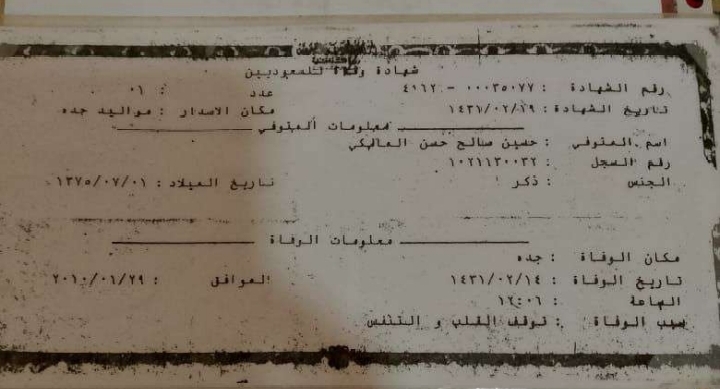 شهادة وفاة للسعوديين
رقم الشهادة : ٠٠٠٣٥٠٧٧ - ٤٠٦٢ عدد : ٠١
تاريخ الشهادة : ١٤٣١/٠٢/١٩ مكان الاصدار : مواليد جده
معلومات المتوفي
اسم المتوفي : حسين صالح حسن المالكي
رقم السجل : ١٠٢١١٣٠٠٣٢
الجنس : ذكر تاريخ الميلاد : ١٣٧٥/٠٧/٠١
معلومات الوفاة
مكان الوفاة : جده
تاريخ الوفاة : ١٤٣١/٠٢/١٤ الموافق : ٢٠١٠/٠١/٢٩
الساعة : ١٢:٠٦
سبب الوفاة : توقف القلب و التنفس